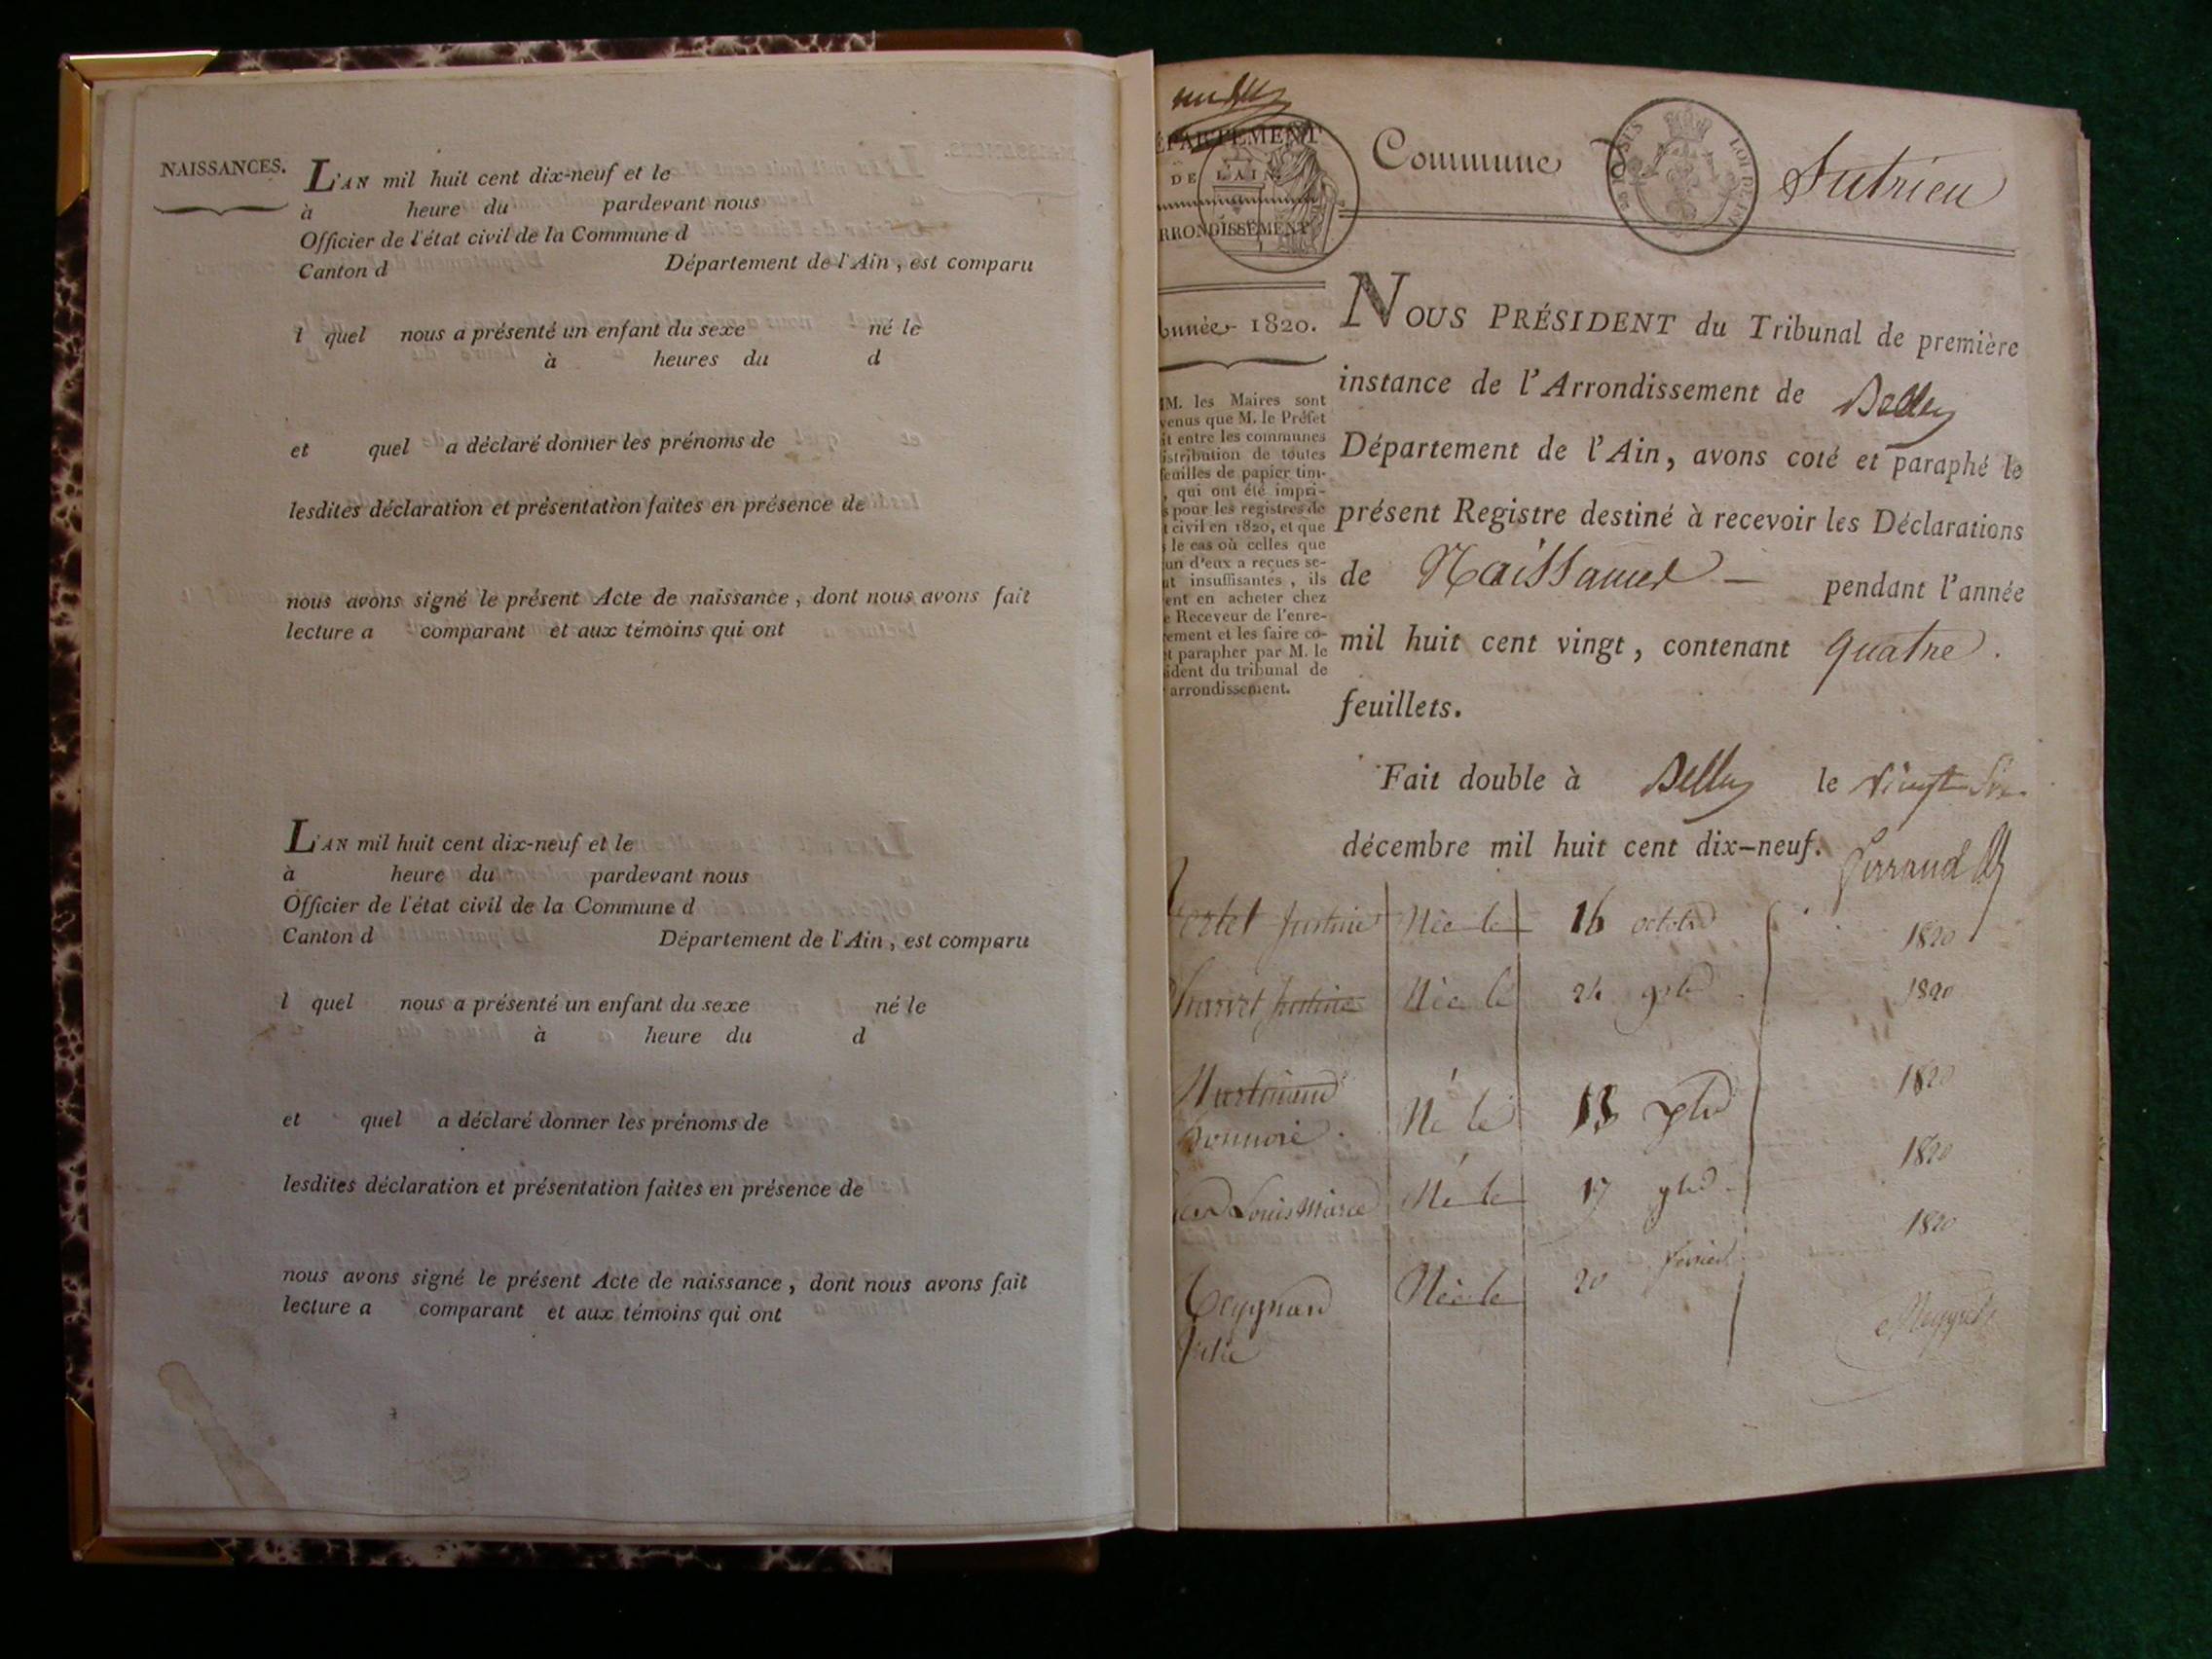 NAISSANCES.
L'AN mil huit cent dix-neuf et le
à heure du pardevant nous
Officier de l'état civil de la Commune d
Canton d Département de l'Ain, est comparu
l quel nous a présenté un enfant du sexe né le
à heures du d
et quel a déclaré donner les prénoms de
lesdites déclaration et présentation faites en présence de
nous avons signé le présent Acte de naissance, dont nous avons fait
lecture a comparant et aux témoins qui ont
L'AN mil huit cent dix-neuf et le
à heure du pardevant nous
Officier de l'état civil de la Commune d
Canton d Département de l'Ain, est comparu
l quel nous a présenté un enfant du sexe né le
à heure du d
et quel a déclaré donner les prénoms de
lesdites déclaration et présentation faites en présence de
nous avons signé le présent Acte de naissance, dont nous avons fait
lecture a comparant et aux témoins qui ont
ÉPARTEMENT
DE L'AIN
RRONDISSEMENT
Commune d Sutrieu
nnée 1820.
M. les Maires sont
venus que M. le Préfet
it entre les communes
istribution de toutes
feuilles de papier tim-
, qui ont été impri-
s pour les registres de
t civil en 1820, et que
s le cas où celles que
un d'eux a reçues se-
nt insuffisantes, ils
ent en acheter chez
e Receveur de l'enre-
ement et les faire co-
et parapher par M. le
sident du tribunal de
arrondissement.
NOUS PRÉSIDENT du Tribunal de première
instance de l'Arrondissement de Belley
Département de l'Ain, avons coté et paraphé le
présent Registre destiné à recevoir les Déclarations
de Naissances pendant l'année
mil huit cent vingt, contenant quatre.
feuillets.
Fait double à Belley le vingt six
décembre mil huit cent dix-neuf.
Justine Née le 16 octobre 1820
Justine Née le 24 9bre 1820
Né le 13 1820
Louis Marie Né le 17 9bre 1820
Née le 20 février 1820
Julie